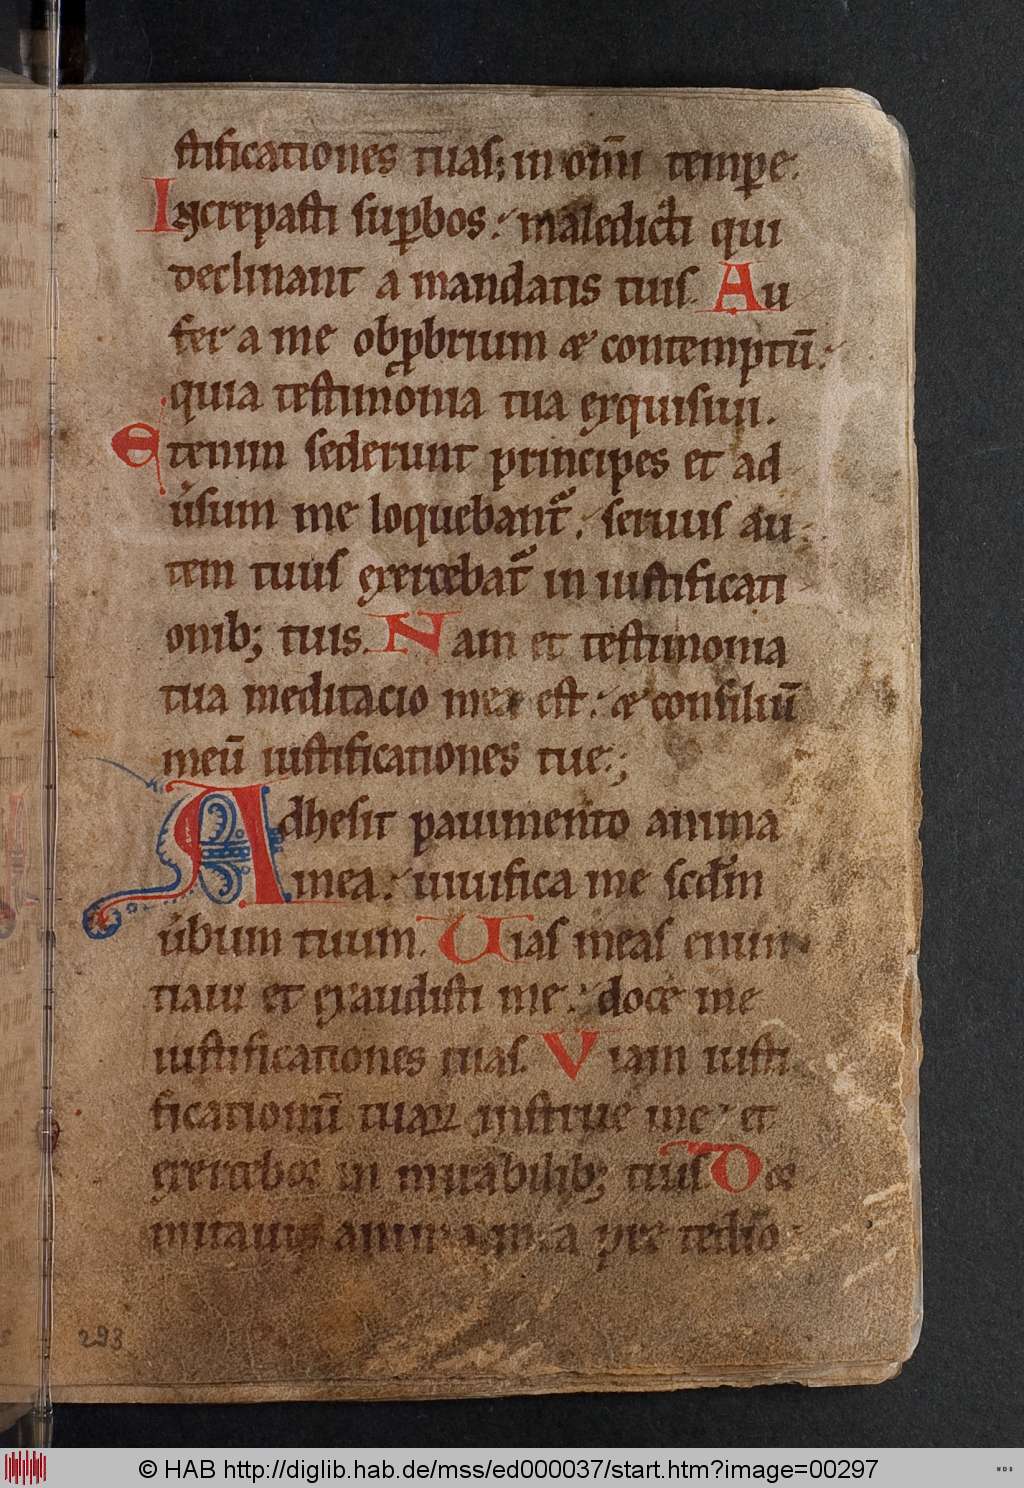 stificationes tuas; in om̄i temꝑe.
Increpasti suꝑbos: maledicti qui
declinant a mandatis tuis. Au
fer a me obꝓbrium & contemptū:
quia testimonia tua exquisiui.
Etenim sederunt principes et ad
u̾sum me loquebant᷑: seruus au
tem tuus exercebat᷑ in iustificati
onib; tuis. Nam et testimonia
tua meditacio mea est: & consiliū
meū iustificationes tue;
Adhesit pauimento anima
mea: uiuifica me scdm̄
u̾bum tuum. Uias meas enun
tiaui et exaudisti me: doce me
iustificationes tuas. Viam iusti
ficationū tuaꝝ instrue me: et
exercebor in mirabilib; tuis Dor
mitauit anima mea pre tedio
293
© HAB http://diglib.hab.de/mss/ed000037/start.htm?image=00297